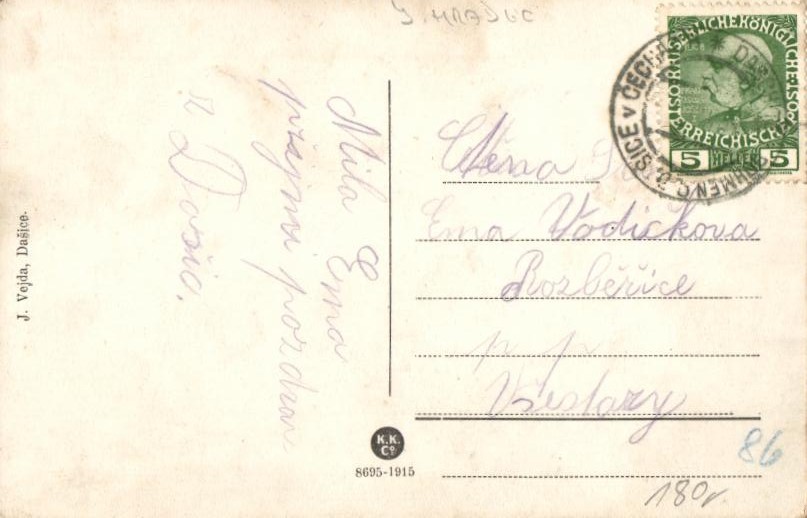 Milá Ema
přijmi pozdrav
z Dašic.
J. Vejda, Dašice.
K.K.
Co
8695-1915
KAISERLICHE KÖNIGLICHE
ÖSTERREICHISCHE POST
5 HELLER 5
DAŠICE v ČECHÁCH
Ctěná
Ema Vodičkova
Rozběřice
p p
Všestary
86
180,-